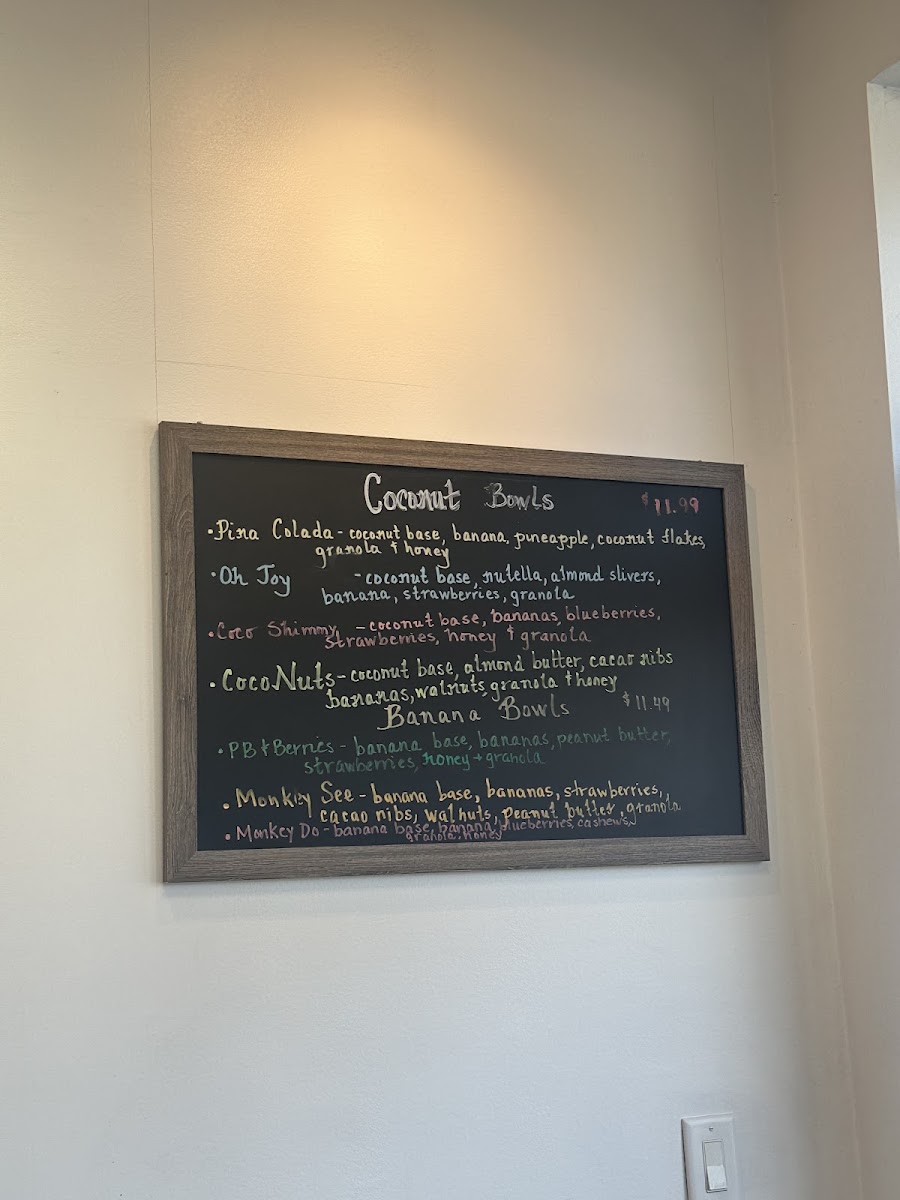 Coconut Bowls $11.99
•Pina Colada - coconut base, banana, pineapple, coconut flakes,
granola + honey
•Oh Joy - coconut base, nutella, almond slivers,
banana, strawberries, granola
•Coco Shimmy - coconut base, bananas, blueberries,
strawberries, honey + granola
•CocoNuts - coconut base, almond butter, cacao nibs
bananas, walnuts, granola + honey
Banana Bowls $11.49
•PB+Berries - banana base, bananas, peanut butter,
strawberries, honey + granola
•Monkey See - banana base, bananas, strawberries,
cacao nibs, walnuts, peanut butter, granola
•Monkey Do - banana base, banana, blueberries, cashews,
granola, honey